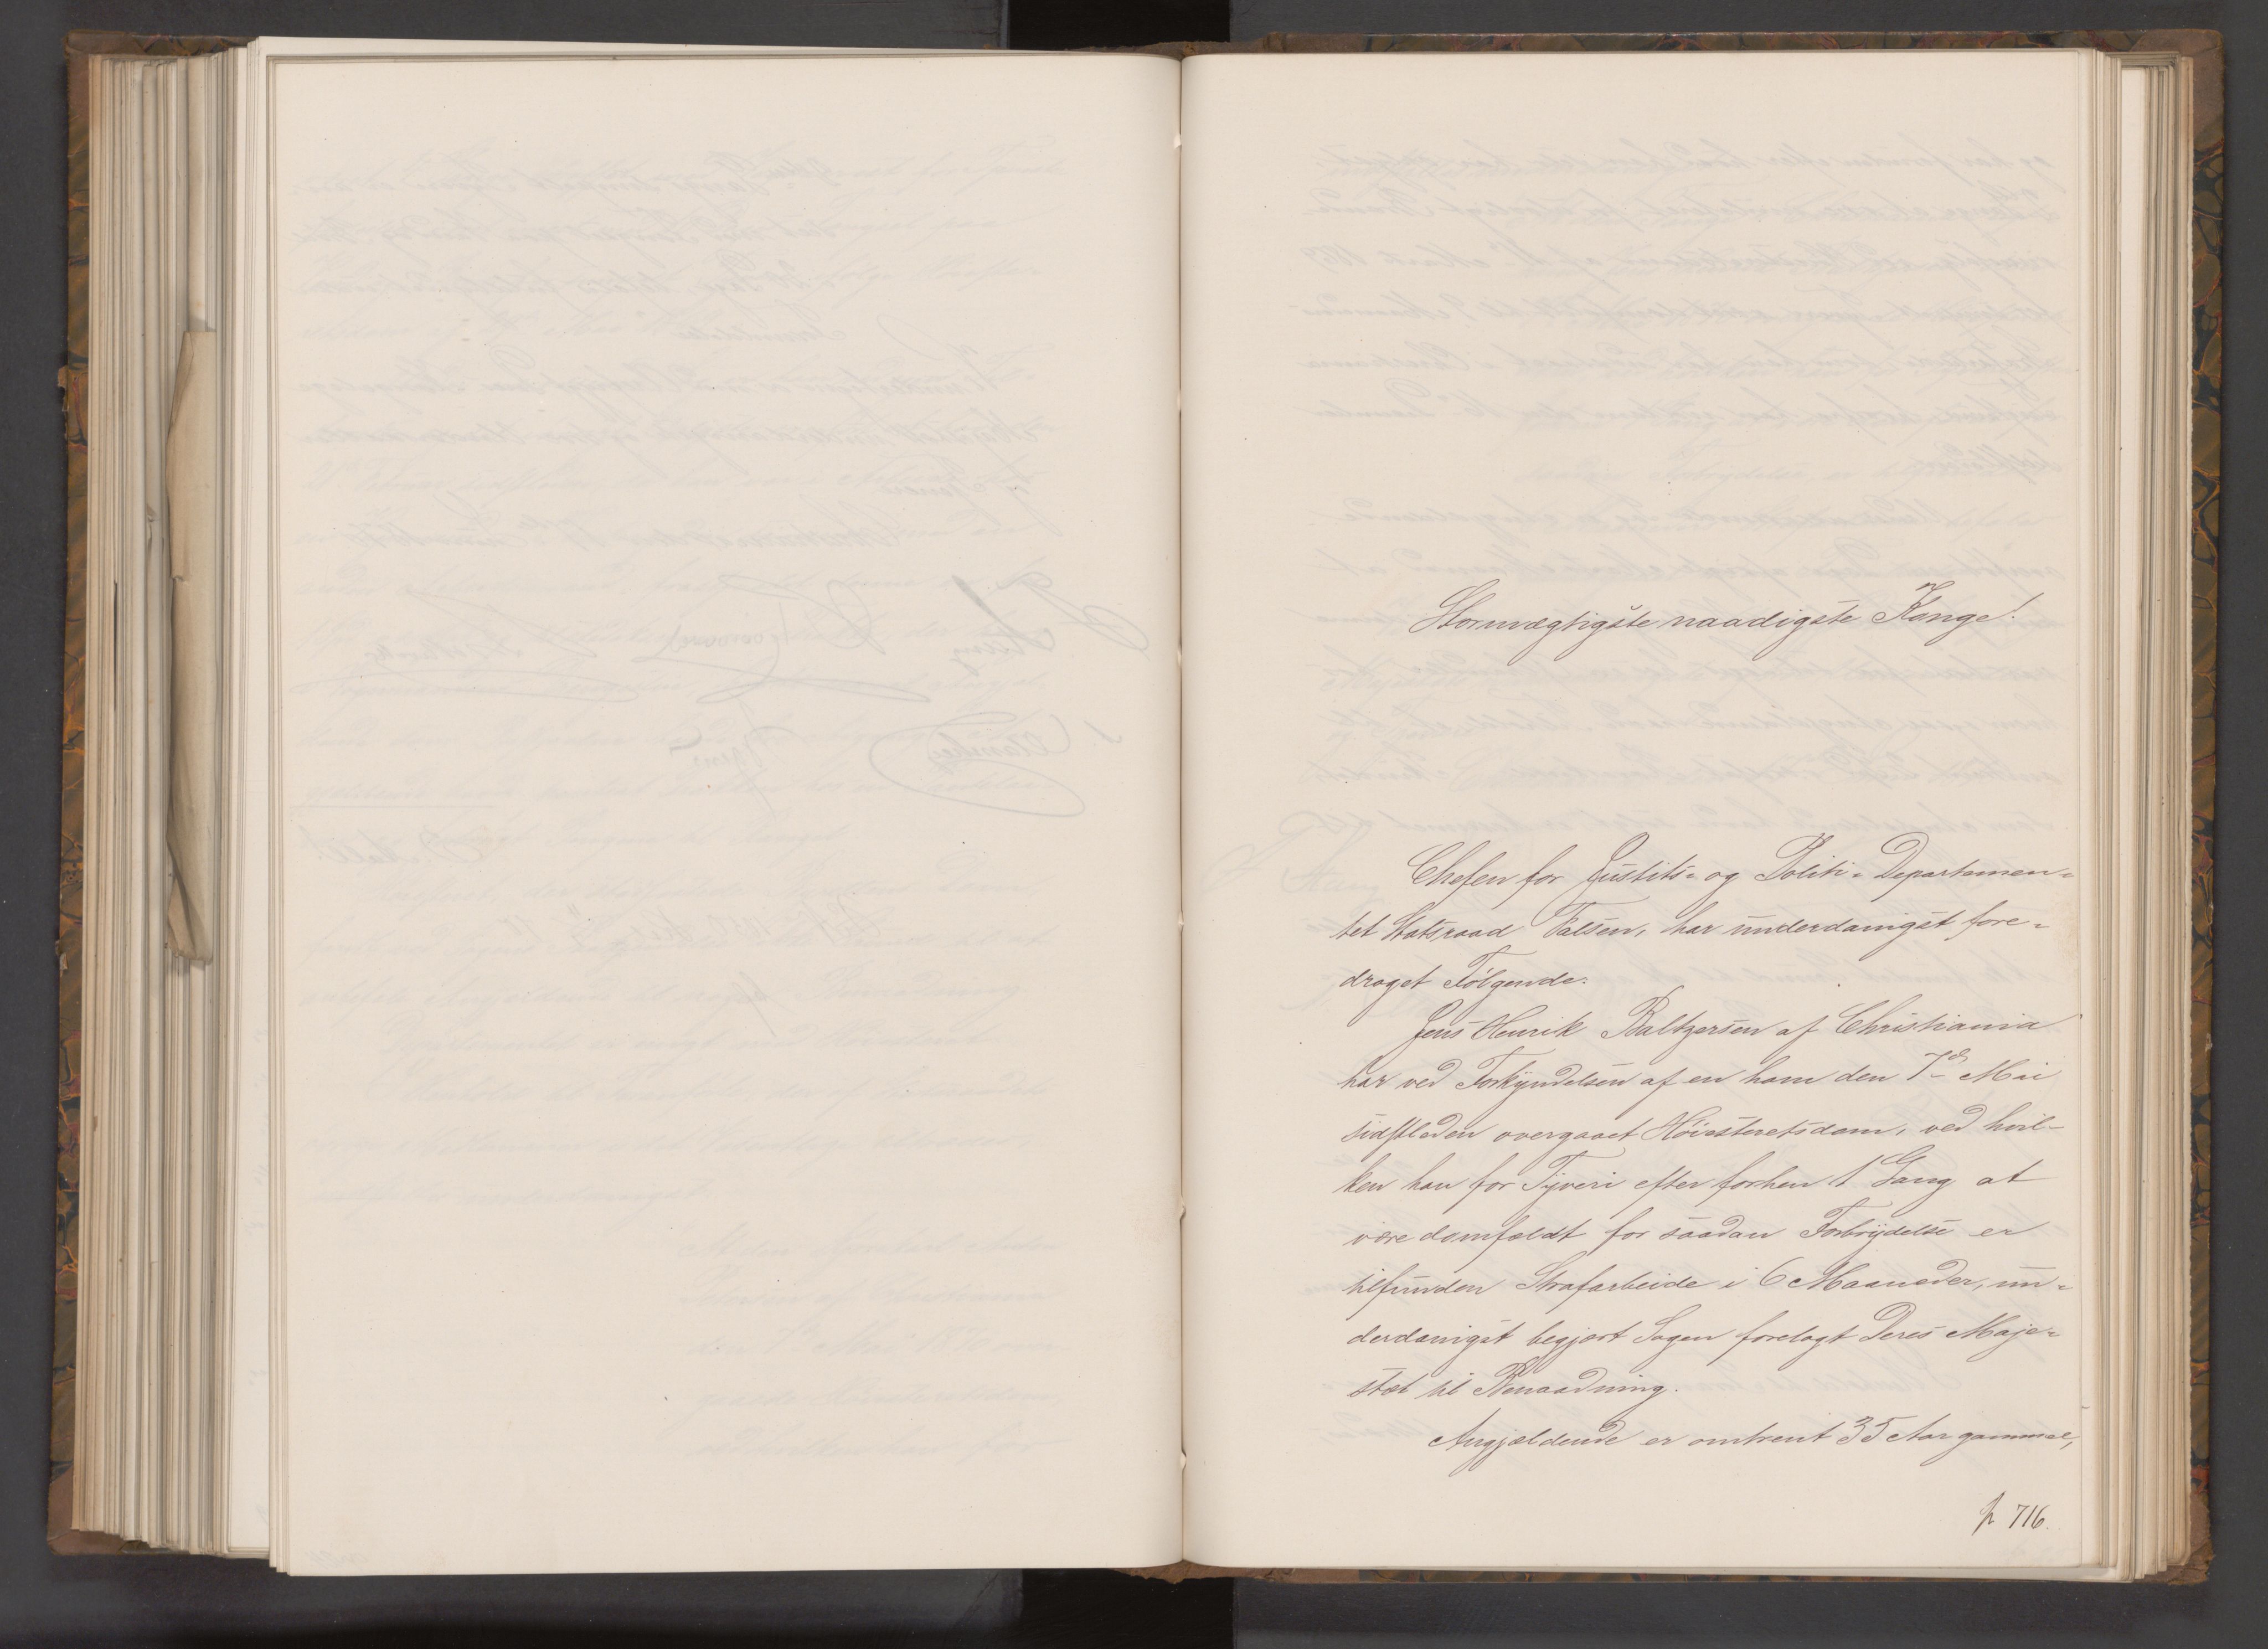 Stormægtigste naadigste Konge!
Chefen for Justits- og Politi-Departemen-
tet Statsraad Falsen, har underdanigst fore-
draget Følgende:
Jens Henrik Baltzersen af Christiania
har ved Forkyndelsen af en ham den 7de Mai
sidstleden overgaaet Høiesteretsdom, ved hvil-
ken han for Tyveri efter forhen 1 Gang at
være domfældt for saadan Forbrydelse er
tilfunden Strafarbeide i 6 Maaneder, un-
derdanigst begjært Sagen forelagt Deres Maje-
stæt til Benaadning.
Angjældende er omtrent 35 Aar gammel,
p 716.